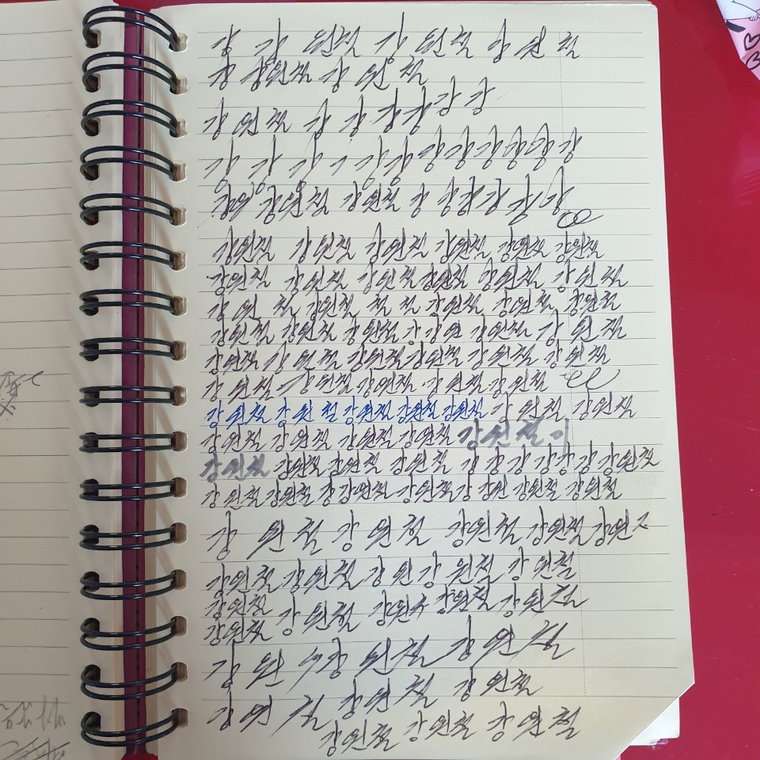 강 강 원철 강 원철 강 원철
강 강원철 강 원철
강 원철 강 강 강 강 강 강
강 강 강 강 강 강 강 강 강 강 강
강원철 강원철 강 강 강 강 강 강
강원철 강원철 강원철 강원철 강원철 강원철
강원철 강원철 강원철 강원철 강원철 강원철
강 원 철 강원철 철 철 강원철 강원철 강원철
강원철 강원철 강원철 강 강 원 강원철 강 원 철
강원철 강 원철 강원철 강원철 강원철 강원철
강 원철 강원철 강원철 강원철 강원철
강 원철 강 원 철 강원철 강원철 강원철 강 원철 강원철
강원철 강원철 강원철 강원철 강원철 이
강원철 강원철 강원철 강원철 강 강 강 강 강 강 강원철
강 원철 강원철 강 강원철 강원철 강 강원 강원철 강원철
강 원철 강 원철 강원철 강원철 강원
강원철 강원철 강 원 강 원철 강 원철
강원철 강원철 강원 강원철 강원철
강원철
강 원 강 원철 강 원철
강 원 철 강 원철 강 원철
강원철 강원철 강 원철